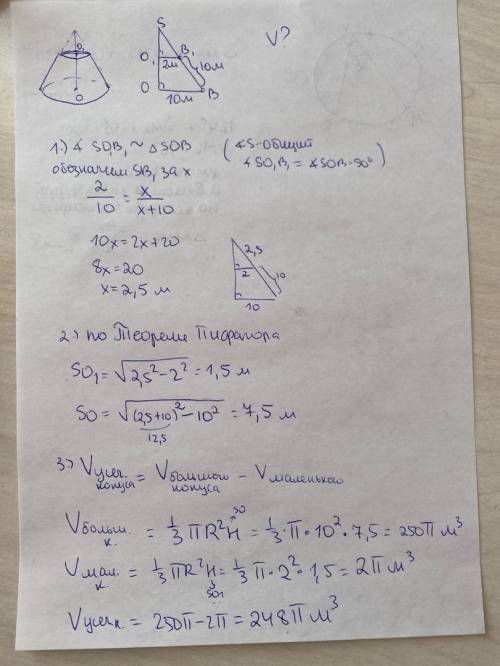 S
O₁ 2м B₁ 10м
O 10м B
V?
O₁
O
1.) ∢ SO₁B₁ ~ △ SOB (∢S-общий
∢ SO₁B₁ = ∢SOB = 90°)
обозначим SB₁ за x
2/10 = x/(x+10)
10x = 2x+20
8x = 20
x = 2,5 м
2,5
2 10
10
2.) по Теореме Пифагора
SO₁ = √(2,5² - 2²) = 1,5 м
SO = √((2,5+10)² - 10²) = 7,5 м
12,5
3.) V усеч. конуса = V большого конуса - V маленького
V больш. к. = 1/3 πR²H = 1/3 · π · 10² · 7,5 = 250π м³
SO
V мал. к. = 1/3 πR²H = 1/3 π · 2² · 1,5 = 2π м³
SO1
V усеч к. = 250π - 2π = 248π м³